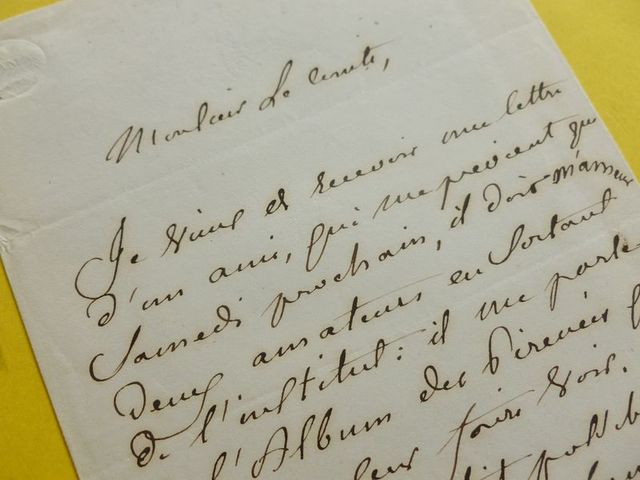 Monsieur Le comte,
Je viens de recevoir une lettre
d'un ami, qui me previent que
Samedi prochain, il doit m'amener
Deux amateurs en Sortant
de l'institut: il me parle
l'Album des Pireneés
leur faire voir.